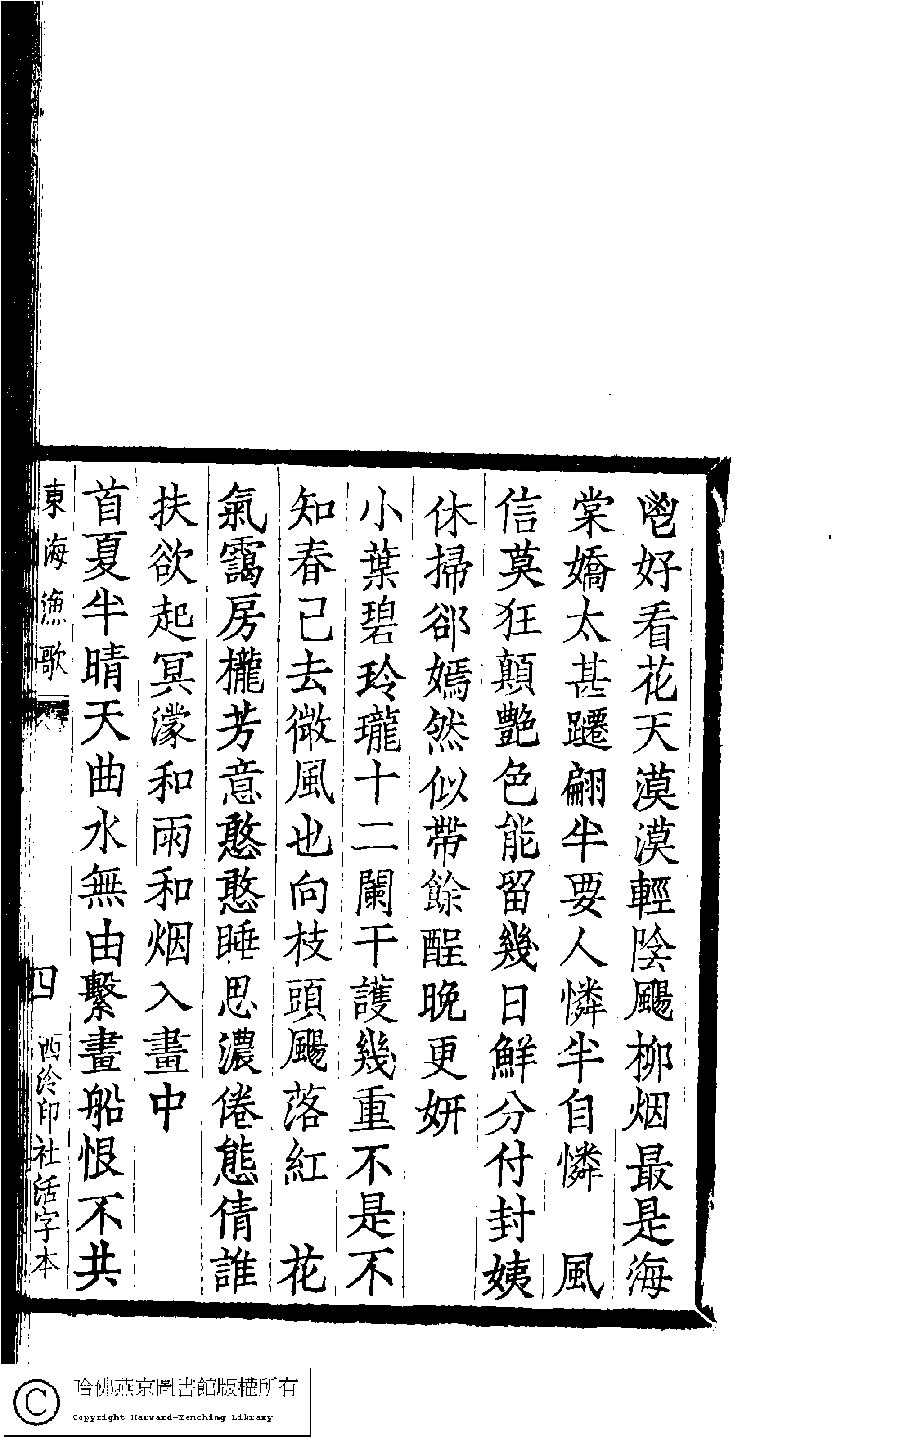 鬯好看花天漠漠輕陰颺柳烟最是海
棠嬌太甚躚翩半要人憐半自憐　風
信莫狂顛艷色能留幾日鮮分付封姨
休掃郤嫣然似帶餘酲晚更妍
小葉碧玲瓏十二闌干護幾重不是不
知春已去微風也向枝頭颺落紅　花
氣靄房櫳芳意憨憨睡思濃倦態倩誰
扶欲起冥濛和雨和烟入畫中
首夏半晴天曲水無由繫畫船恨不共
東海漁歌
四
西泠印社活字本
哈佛燕京圖書館版權所有
Copyright Harvard-Yenching Library